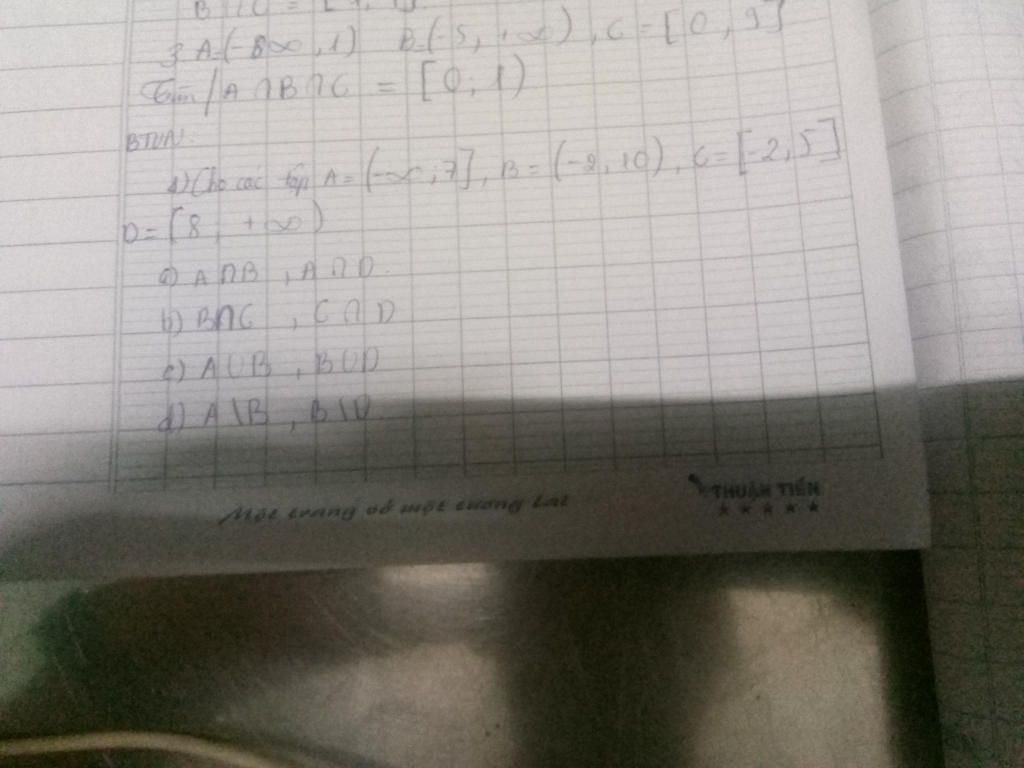 3 A=(-8∞, 1) B=(-5, +∞), C=[0, 9]
Tìm/A∩B∩C = [0; 1)
BTVN:
1) Cho các tập A=(-∞;7], B=(-2,10), C=[-2,5]
D=[8; +∞)
a) A∩B, A∩D.
b) B∩C, C∩D
c) A∪B, B∪D
d) A\B, B\D
Một trang vở một tương lai
THUẬN TIẾN